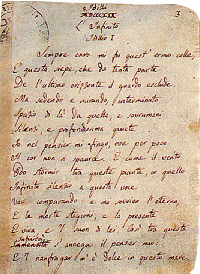 Idilli
MDCCCXIX
3
L'Infinito
Idillio I
Sempre caro mi fu quest'ermo colle,
E questa siepe, che da tanta parte
De l'ultimo orizzonte il guardo esclude.
Ma sedendo e mirando, l'interminato
Spazio di là da quella, e sovrumani
Silenzi, e profondissima quiete
Io nel pensier mi fingo, ove per poco
Il cor non si spaura. E come il vento
Odo stormir tra queste piante, io quello
Infinito silenzio a questa voce
Vo comparando: e mi sovvien l'eterno,
E le morte stagioni, e la presente
E viva, e 'l suon di lei. Così tra questa
Infinità
Immensità s'annega il pensier mio:
E 'l naufragar m'è dolce in questo mare.